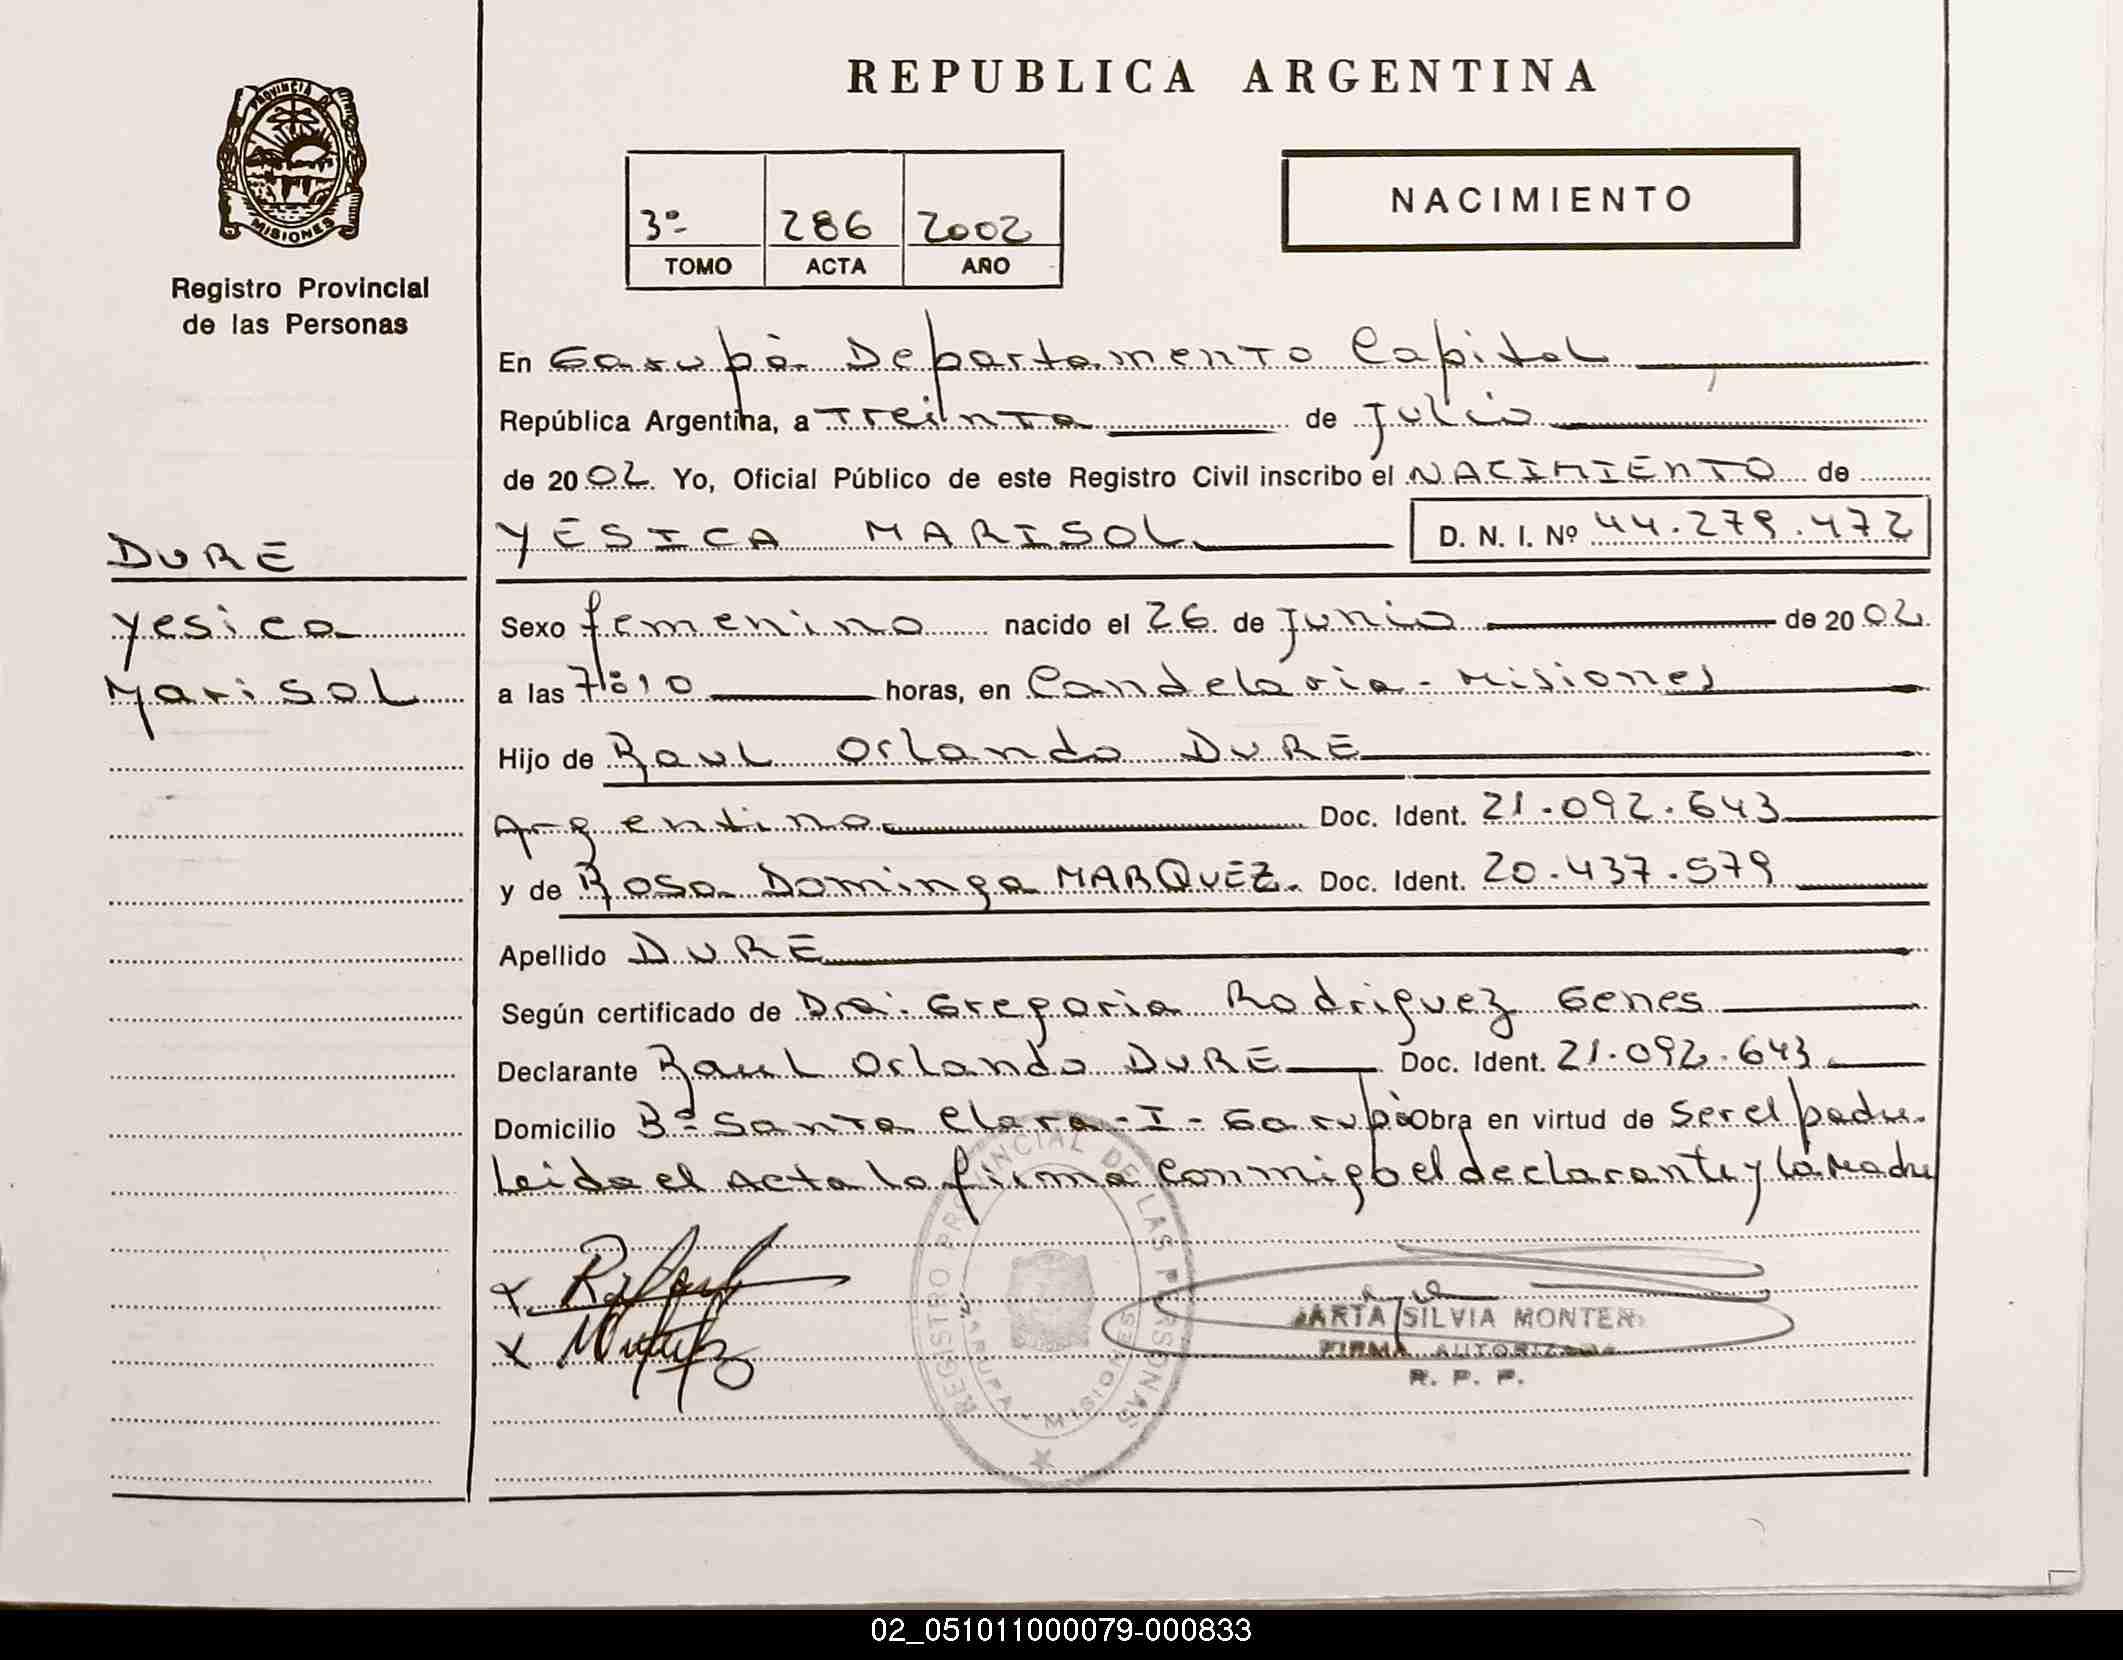 REPUBLICA ARGENTINA
PROVINCIA DE
MISIONES
Registro Provincial
de las Personas
3º 286 2002
TOMO ACTA AÑO
NACIMIENTO
En Garupà Departamento Capital
República Argentina, a Treinta de Julio
de 2002 Yo, Oficial Público de este Registro Civil inscribo el NACIMIENTO de
DURE
Yesica
Marisol
YESICA MARISOL D. N. I. Nº 44.279.472
Sexo femenino nacido el 26 de Junio de 2002
a las 7:10 horas, en Candelaria - Misiones
Hijo de Raul Orlando DURE
Argentino Doc. Ident. 21.092.643
y de Rosa Dominga MARQUEZ. Doc. Ident. 20.437.579
Apellido DURE
Según certificado de Dra: Gregoria Rodriguez Genes
Declarante Raul Orlando DURE Doc. Ident. 21.092.643
Domicilio Bº Santa Clara - I - Garupà Obra en virtud de Ser el padre.
Leida el Acta la firma Conmigo el declarante y la Madre
REGISTRO PROVINCIAL DE LAS PERSONAS
GARUPA - MISIONES
ARTA SILVIA MONTER
FIRMA AUTORIZADA
R. P. P.
02_051011000079-000833